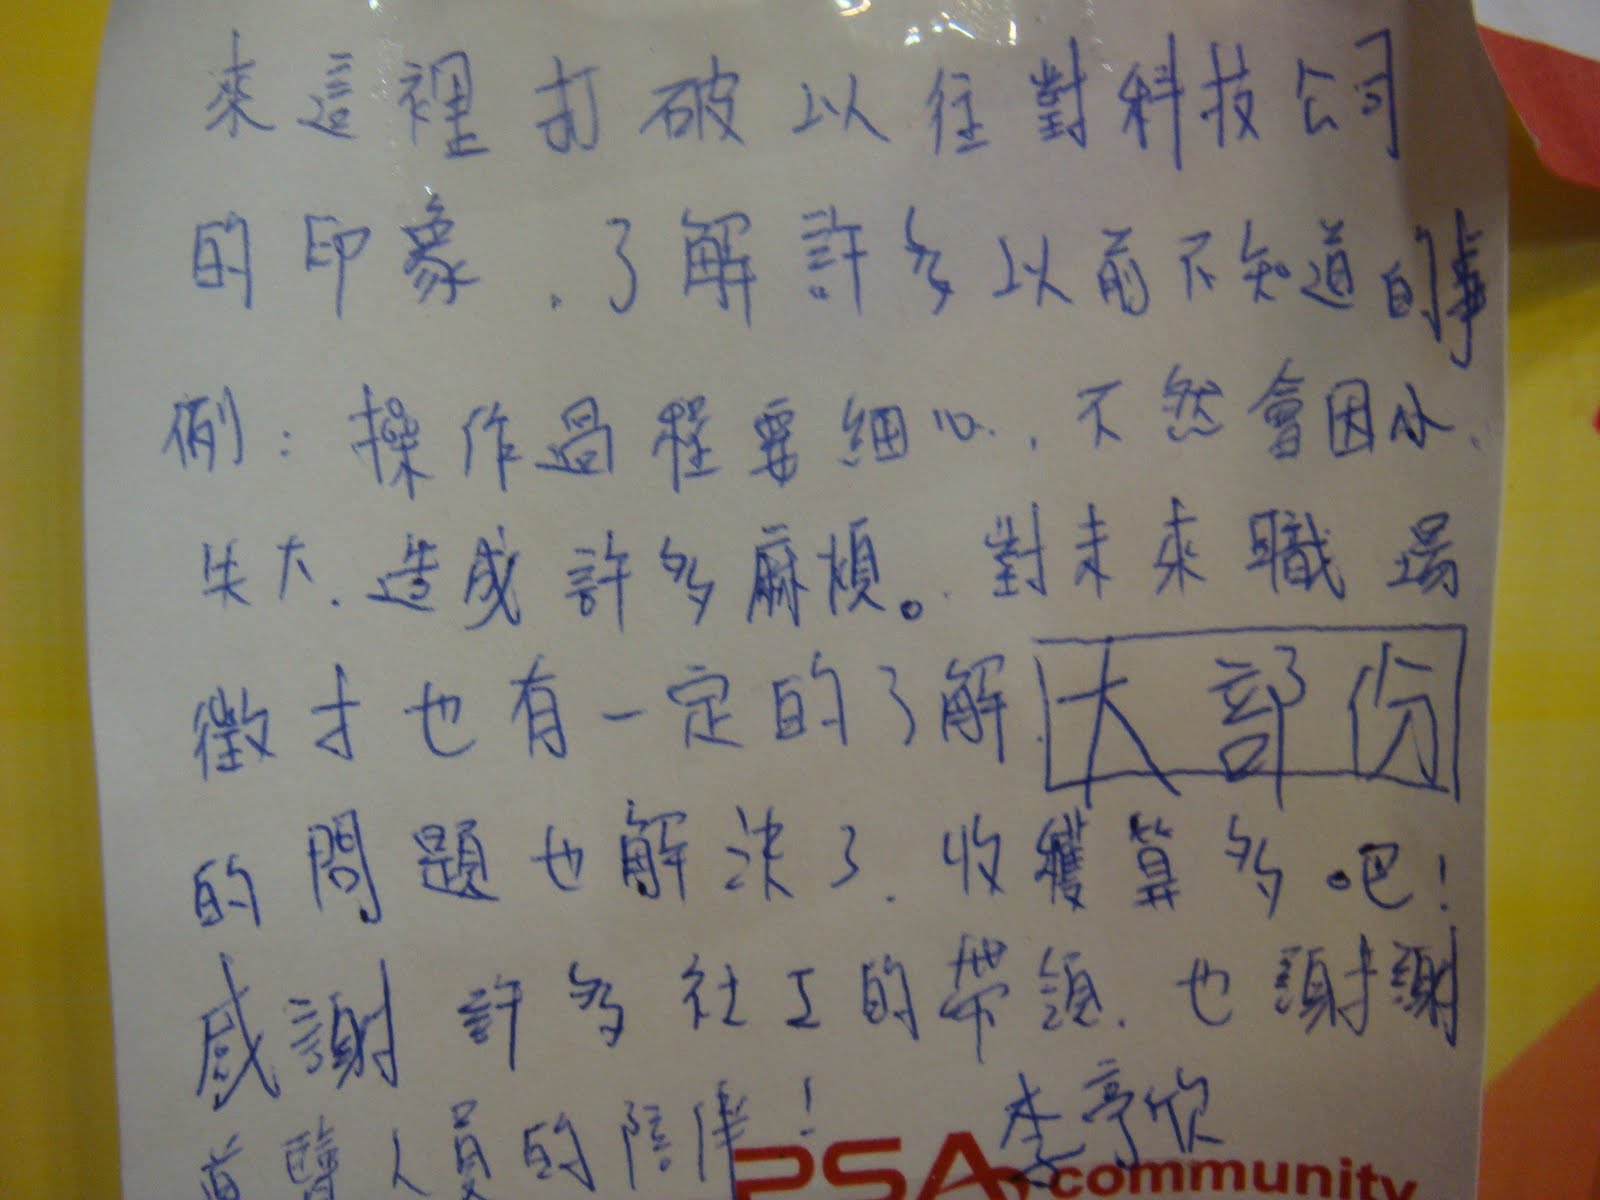 來這裡打破以往對科技公司
的印象，了解許多以前不知道的事
例：操作過程要細心，不然會因小
失大，造成許多麻煩。對未來職場
徵才也有一定的了解，大部份
的問題也解決了，收穫算多吧！
感謝許多社工的帶領，也謝謝
導覽人員的陪伴！ 李亭欣
PSA community